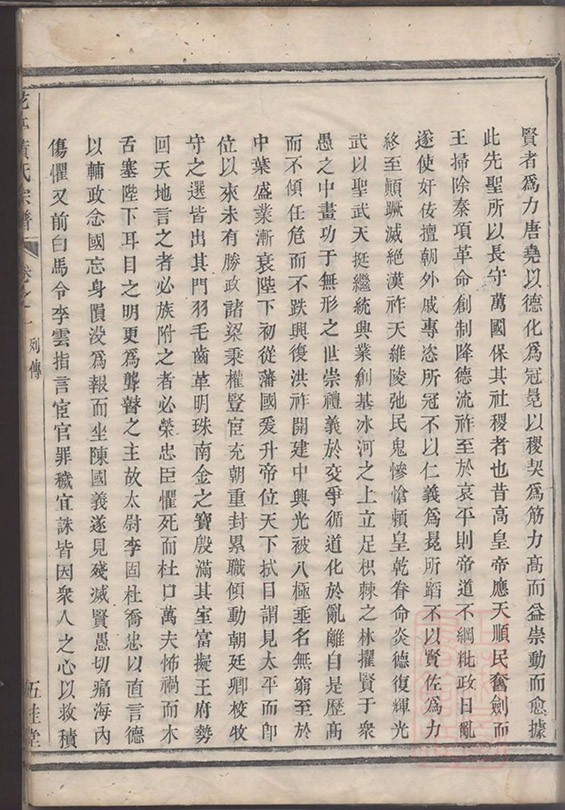 賢者爲力唐堯以德化爲冠冕以稷契爲筋力高而益崇動而愈據
此先聖所以長守萬國保其社稷者也昔高皇帝應天順民奮劍而
王掃除秦項革命創制降德流祚至於哀平則帝道不綱秕政日亂
遂使奸佞擅朝外戚專恣所冠不以仁義爲冕所蹈不以賢佐爲力
終至顛蹶滅絕漢祚天維陵弛民鬼慘愴賴皇乾眷命炎德復輝光
武以聖武天挺繼統興業創基冰河之上立足枳棘之林擢賢于衆
愚之中畫功于無形之世崇禮義於交爭循道化於亂離自是歷高
而不傾任危而不跌興復洪祚開建中興光被八極垂名無窮至於
中葉盛業漸衰陛下初從藩國爰升帝位天下拭目謂見太平而卽
位以來未有勝政諸梁秉權豎宦充朝重封累職傾動朝廷卿校牧
守之選皆出其門羽毛齒革明珠南金之寶殷滿其室富擬王府勢
回天地言之者必族附之者必榮忠臣懼死而杜口萬夫怖禍而木
舌塞陛下耳目之明更爲聾瞽之主故太尉李固杜喬忠以直言德
以輔政念國忘身隕沒爲報而坐陳國義遂見殘滅賢愚切痛海內
傷懼又前白馬令李雲指言宦官罪穢宜誅皆因衆人之心以救積
黃氏宗譜
卷之一
列傳
五桂堂